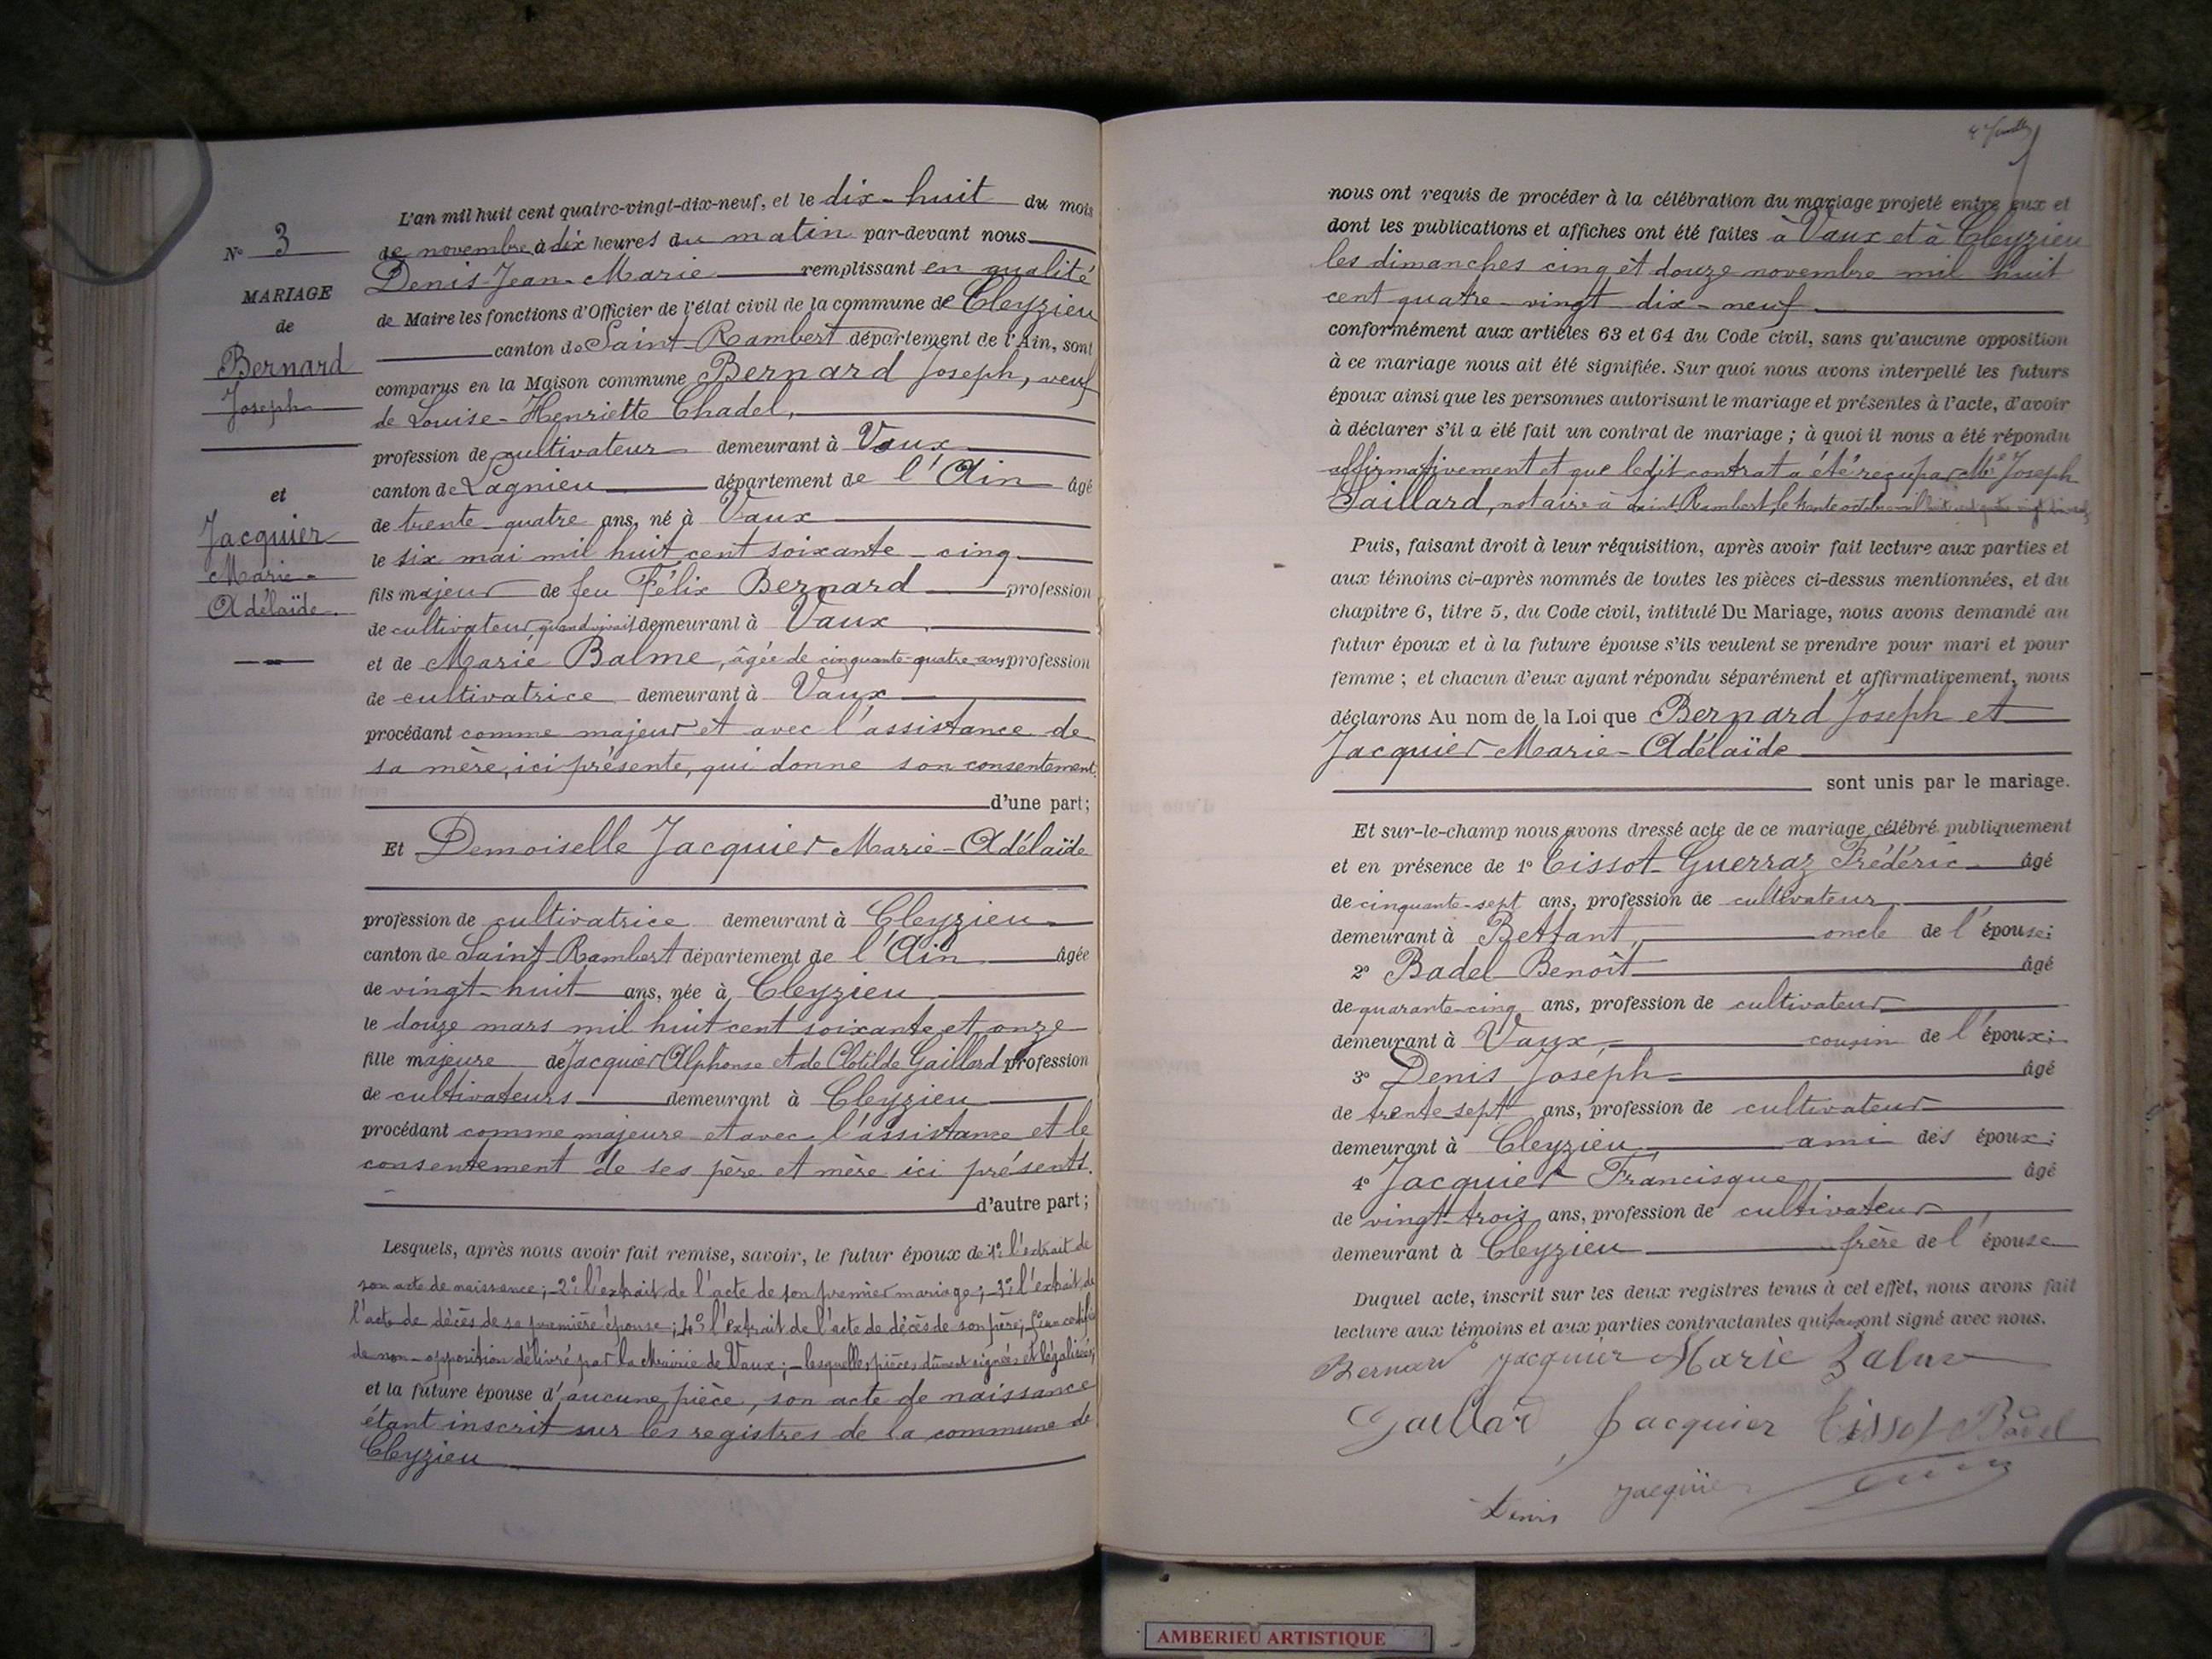 N° 3
MARIAGE
de
Bernard
Joseph
et
Jacquier
Marie-
Adélaïde.
L'an mil huit cent quatre-vingt-dix-neuf, et le dix-huit du mois
de novembre à dix heures du matin par-devant nous
Denis Jean-Marie remplissant en qualité
de Maire les fonctions d'Officier de l'état civil de la commune de Cleyzieu
canton de Saint-Rambert département de l'Ain, sont
comparus en la Maison commune Bernard Joseph, veuf
de Louise-Henriette Chadel,
profession de cultivateur demeurant à Vaux
canton de Lagnieu département de l'Ain âgé
de trente-quatre ans, né à Vaux
le six mai mil huit cent soixante-cinq
fils majeur de feu Félix Bernard profession
de cultivateur, quand vivait demeurant à Vaux
et de Marie Balme, âgée de cinquante-quatre ans profession
de cultivatrice demeurant à Vaux
procédant comme majeur et avec l'assistance de
sa mère, ici présente, qui donne son consentement.
d'une part;
Et Demoiselle Jacquier Marie-Adélaïde
profession de cultivatrice demeurant à Cleyzieu
canton de Saint-Rambert département de l'Ain âgée
de vingt-huit ans, née à Cleyzieu
le douze mars mil huit cent soixante et onze
fille majeure de Jacquier Alphonse et de Clotilde Gaillard profession
de cultivateurs demeurant à Cleyzieu
procédant comme majeure et avec l'assistance et le
consentement de ses père et mère ici présents.
d'autre part;
Lesquels, après nous avoir fait remise, savoir, le futur époux de 1° l'extrait de
son acte de naissance; - 2° l'extrait de l'acte de son premier mariage; - 3° l'extrait de
l'acte de décès de sa première épouse; 4° l'extrait de l'acte de décès de son père; - 5° un certificat
de non-opposition délivré par la Mairie de Vaux; - lesquelles pièces dûment signées et légalisées;
et la future épouse d'aucune pièce, son acte de naissance
étant inscrit sur les registres de la commune de
Cleyzieu
nous ont requis de procéder à la célébration du mariage projeté entre eux et
dont les publications et affiches ont été faites à Vaux et à Cleyzieu
les dimanches cinq et douze novembre mil huit
cent quatre-vingt dix-neuf
conformément aux articles 63 et 64 du Code civil, sans qu'aucune opposition
à ce mariage nous ait été signifiée. Sur quoi nous avons interpellé les futurs
époux ainsi que les personnes autorisant le mariage et présentes à l'acte, d'avoir
à déclarer s'il a été fait un contrat de mariage; à quoi il nous a été répondu
affirmativement et que ledit contrat a été reçu par Me Joseph
Saillard, notaire à Saint-Rambert, le trente octobre mil huit cent quatre vingt dix neuf
Puis, faisant droit à leur réquisition, après avoir fait lecture aux parties et
aux témoins ci-après nommés de toutes les pièces ci-dessus mentionnées, et du
chapitre 6, titre 5, du Code civil, intitulé Du Mariage, nous avons demandé au
futur époux et à la future épouse s'ils veulent se prendre pour mari et pour
femme; et chacun d'eux ayant répondu séparément et affirmativement, nous
déclarons Au nom de la Loi que Bernard Joseph et
Jacquier Marie-Adélaïde
sont unis par le mariage.
Et sur-le-champ nous avons dressé acte de ce mariage, célébré publiquement
et en présence de 1° Tissot-Guerraz Frédéric âgé
de cinquante-sept ans, profession de cultivateur
demeurant à Bettant, oncle de l'épouse;
2° Badel Benoît âgé
de quarante-cinq ans, profession de cultivateur
demeurant à Vaux, cousin de l'époux;
3° Denis Joseph âgé
de trente sept ans, profession de cultivateur
demeurant à Cleyzieu ami des époux;
4° Jacquier Francisque âgé
de vingt-trois ans, profession de cultivateur
demeurant à Cleyzieu frère de l'épouse
Duquel acte, inscrit sur les deux registres tenus à cet effet, nous avons fait
lecture aux témoins et aux parties contractantes qui tous ont signé avec nous.
Bernard Jacquier Marie Balme
Gaillard Jacquier Tissot Badel
Denis Jacquier
AMBERIEU ARTISTIQUE